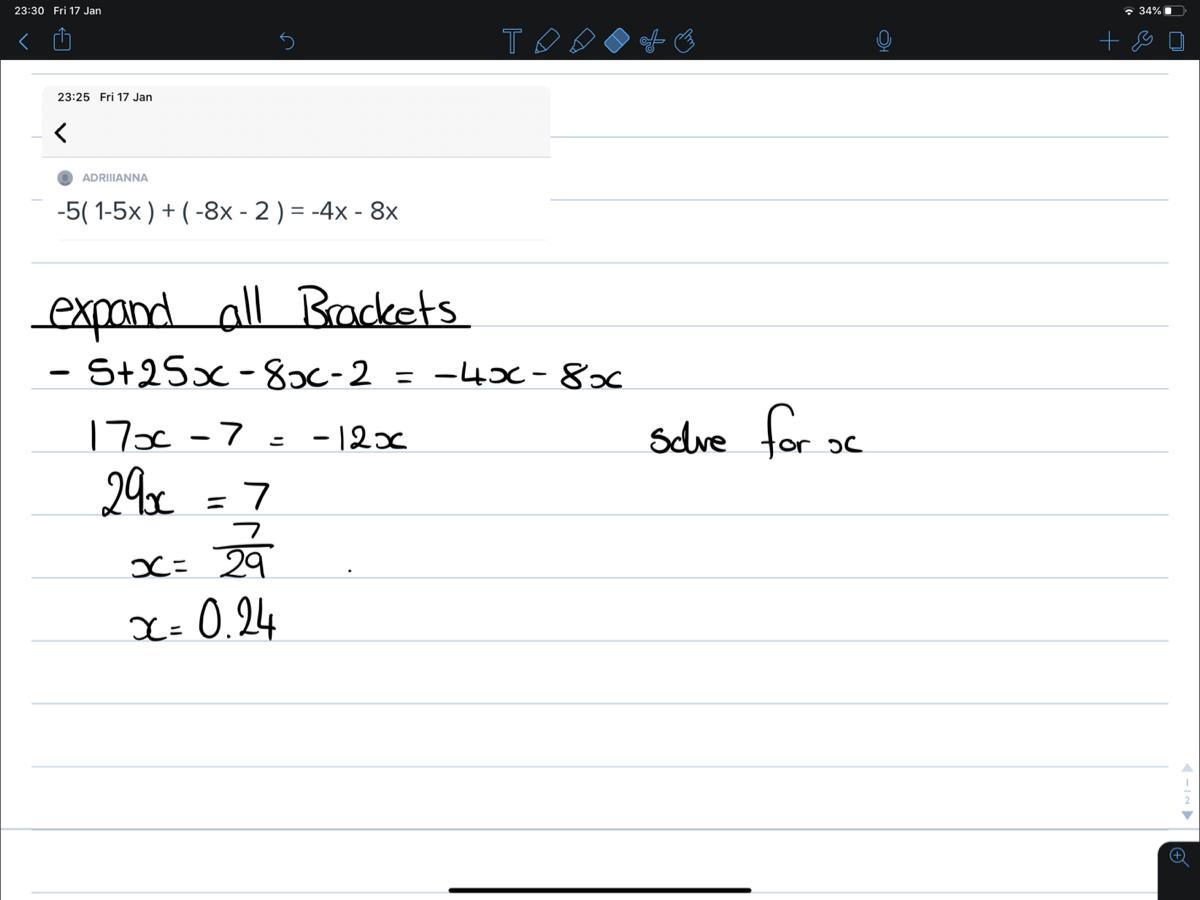 23:30 Fri 17 Jan 34%
T
23:25 Fri 17 Jan
ADRIIIANNA
-5( 1-5x ) + ( -8x - 2 ) = -4x - 8x
expand all Brackets
- 5+25x - 8x - 2 = -4x - 8x
17x - 7 = -12x solve for x
29x = 7
x = 7/29
x = 0.24
1
2